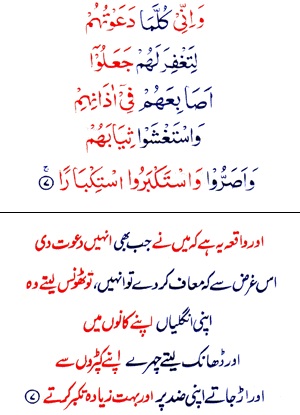 وَاِنِّىۡ كُلَّمَا دَعَوۡتُهُمۡ
لِتَغۡفِرَ لَهُمۡ جَعَلُوۡۤا
اَصَابِعَهُمۡ فِىۡۤ اٰذَانِهِمۡ
وَاسۡتَغۡشَوۡا ثِيَابَهُمۡ
وَاَصَرُّوۡا وَاسۡتَكۡبَرُوا اسۡتِكۡبَارًا ۚ‏ ﴿۷﴾
اور واقعہ یہ ہے کہ میں نے جب بھی انہیں دعوت دی
اس غرض سے کہ معاف کر دے تو انہیں، تو ٹھونس لیتے وہ
اپنی انگلیاں اپنے کانوں میں
اور ڈھانک لیتے چہرے اپنے کپڑوں سے
اور اڑ جاتے اپنی ضد پر اور بہت زیادہ تکبر کرتے ﴿۷﴾